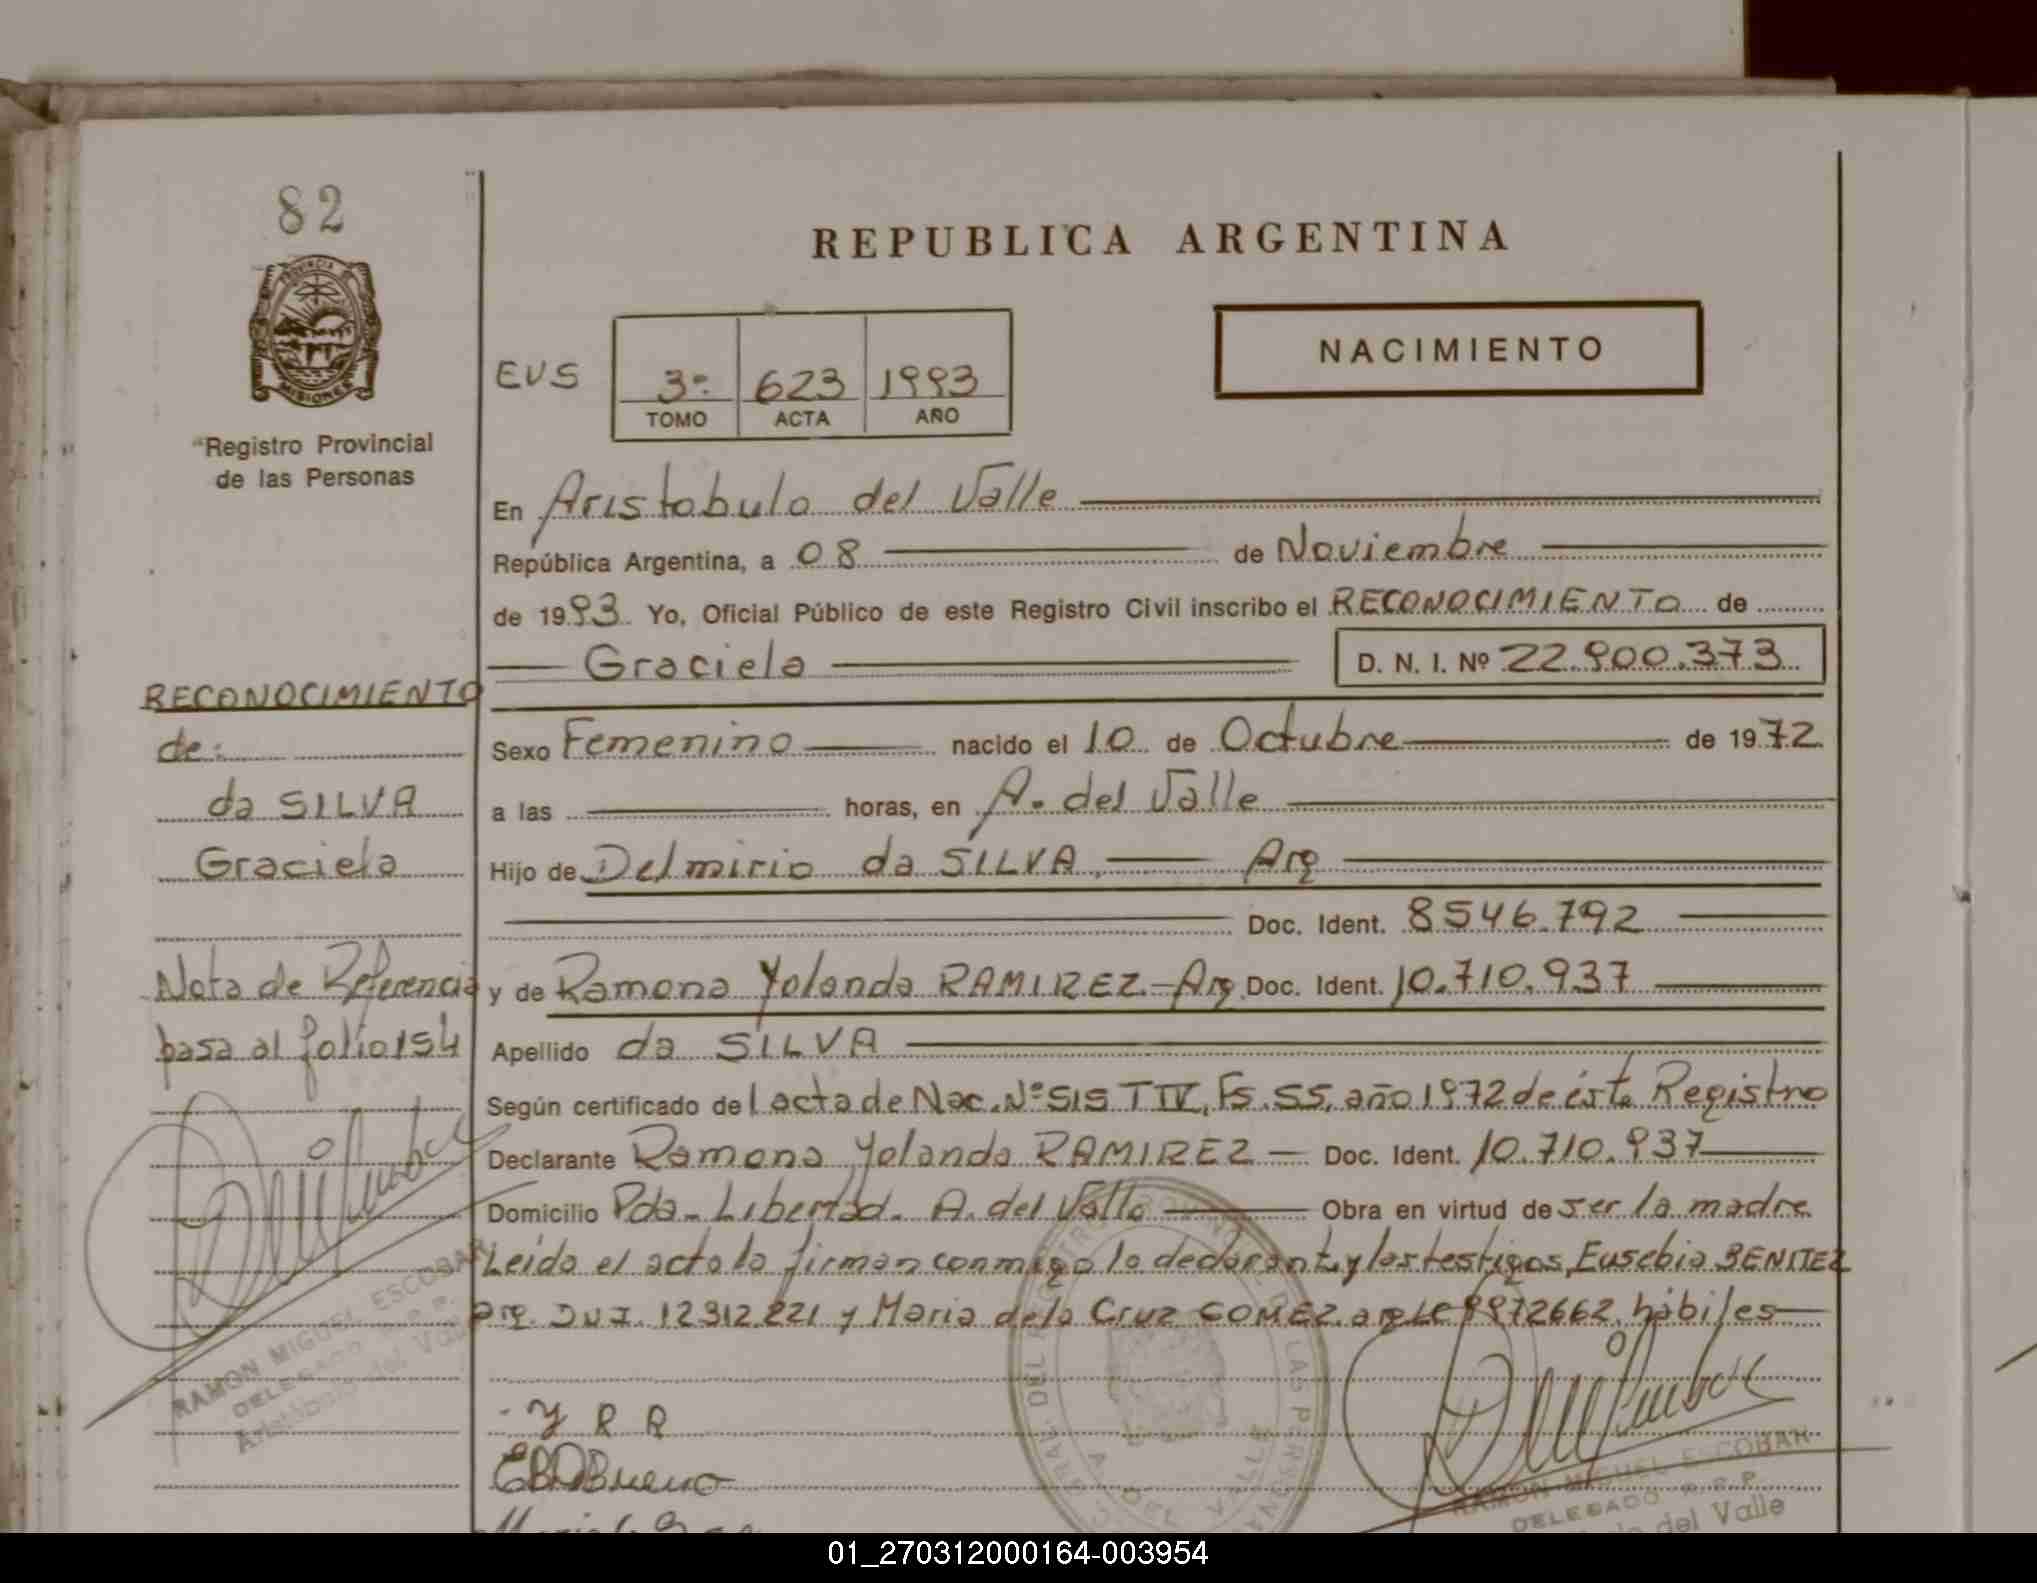 82
REPUBLICA ARGENTINA
PROVINCIA DE
MISIONES
"Registro Provincial
de las Personas
EVS
3º 623 1993
TOMO ACTA AÑO
NACIMIENTO
En Aristobulo del Valle
República Argentina, a 08 de Noviembre
de 1993 Yo, Oficial Público de este Registro Civil inscribo el RECONOCIMIENTO de
Graciela D. N. I. Nº 22.900.373
RECONOCIMIENTO
de:
da SILVA
Graciela
Nota de Referencia
pasa al folio 154
RAMON MIGUEL ESCOBAR
DELEGADO R. P. P.
Aristóbulo del Valle
Sexo Femenino nacido el 10 de Octubre de 1972
a las horas, en A. del Valle
Hijo de Delmirio da SILVA, Arg
Doc. Ident. 8546.792
y de Ramona Yolanda RAMIREZ.- Arg. Doc. Ident. 10.710.937
Apellido da SILVA
Según certificado del acta de Nac. Nº 515 T IV, Fs. 55, año 1972 de éste Registro
Declarante Ramona Yolanda RAMIREZ Doc. Ident. 10.710.937
Domicilio Pda. Libertad. A. del Valle Obra en virtud de ser la madre
Leida el acta la firman conmigo la declarante y los testigos, Eusebia BENITEZ
arg. DNI. 12312221 y Maria de la Cruz GOMEZ. arg LE 9972662. hábiles
Y R R
RAMON MIGUEL ESCOBAR
DELEGADO R. P. P.
del Valle
01_270312000164-003954